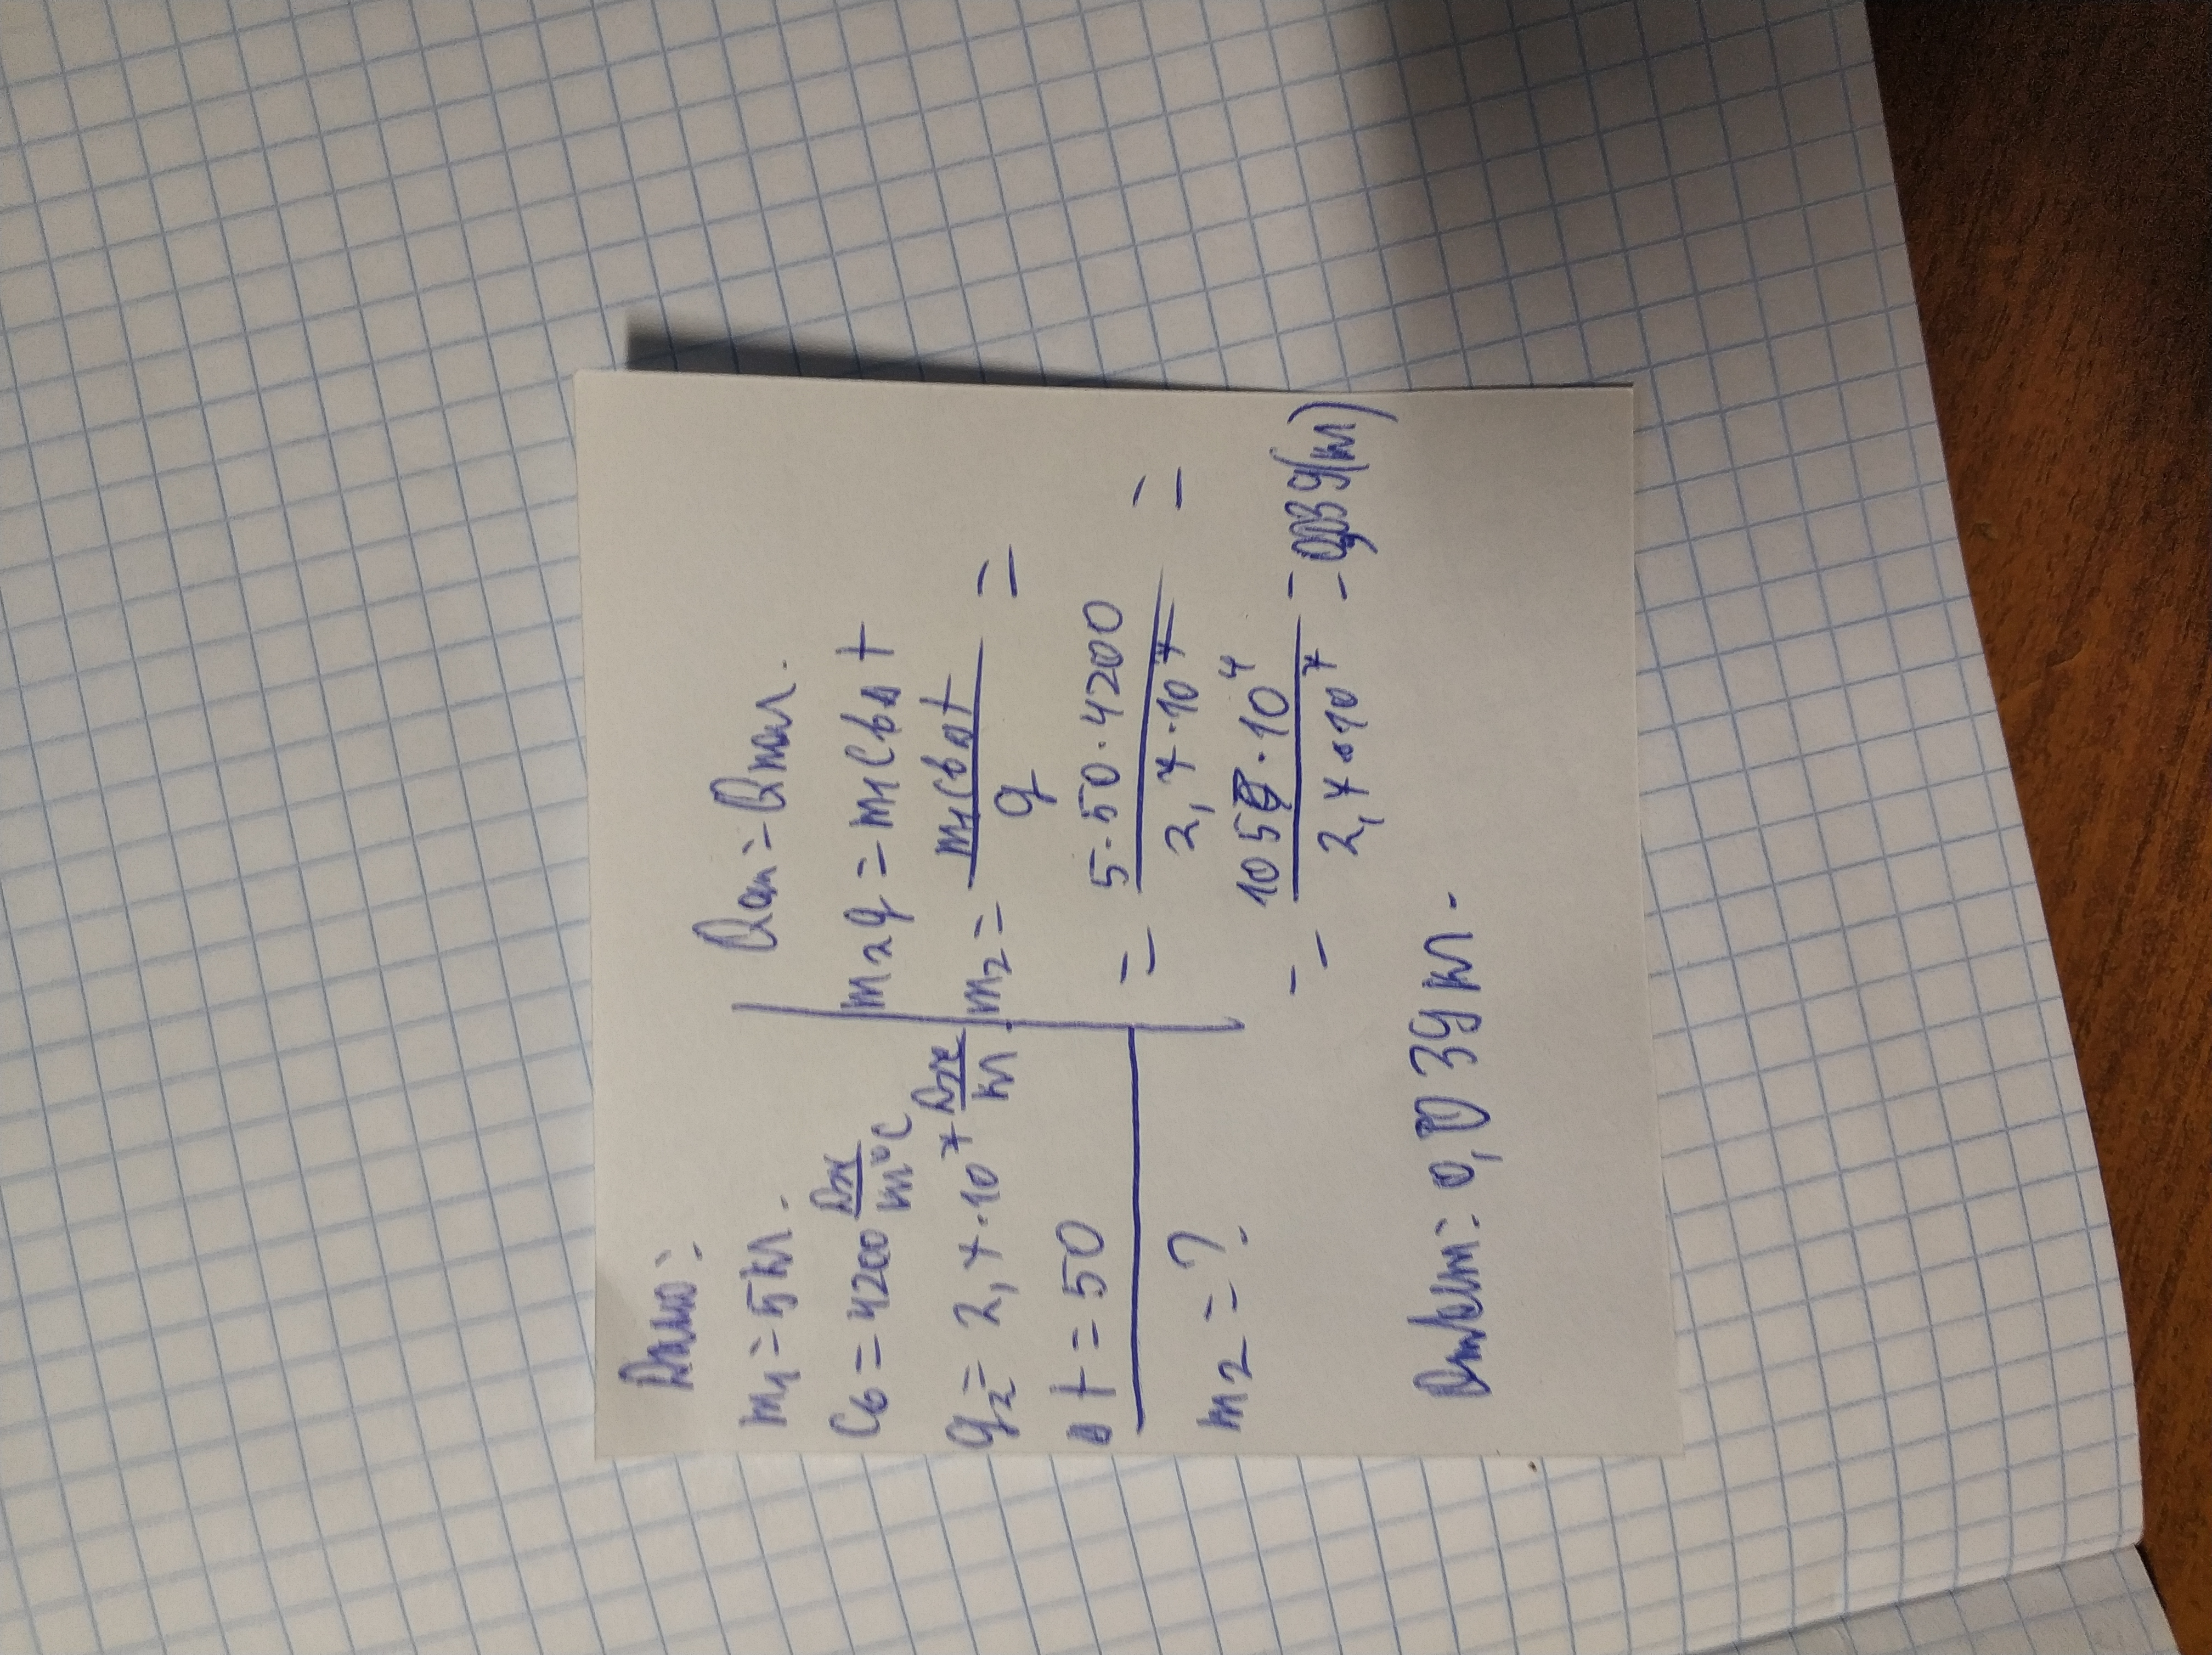 Дано:
m₁ = 5 кг.
Cв = 4200 Дж/кг°C
q₂ = 2,7·10⁷ Дж/кг
Δt = 50
m₂ = ?
m₂q = m₁CвΔt
m₂ = m₁CвΔt/q =
= 5·50·4200/2,7·10⁷ =
= 105·10⁴/2,7·10⁷ = 0,039(кг)
Ответ: 0,039 кг.